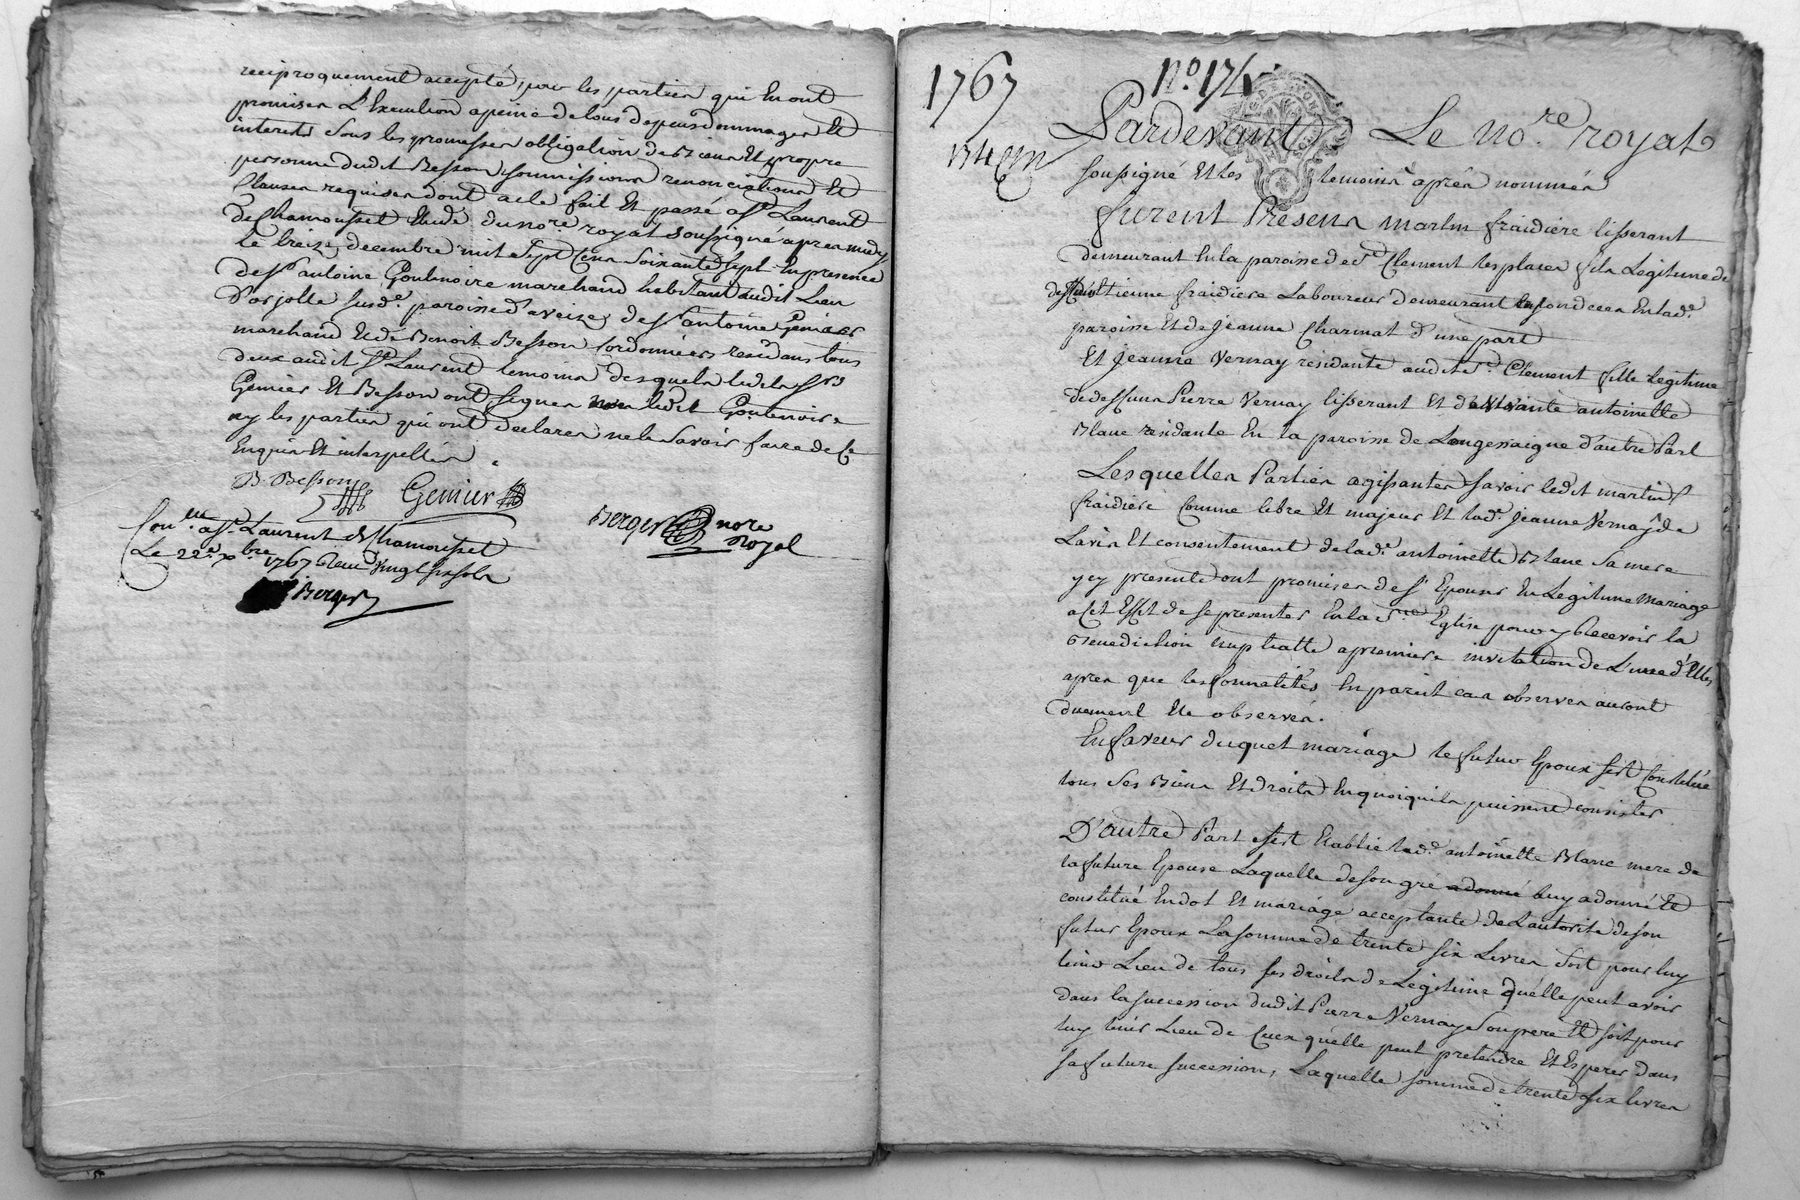 reciproquement accepté, par les parties qui En ont
promises L'Execution a peine de tous depens dommages Et
interets sous les promesses obligation de Biens Et propre
personne dudit Besson soumissions renonciations Et
Clauses requises dont acte fait Et passé a St. Laurent
de Chamousset Etude du nore. royal soussigné apres midy
le treize decembre mil sept Cens Soixante Sept En presence
de Sr. antoine Goutenoire marchand habitant audit Lieu
D'orjolle susde. paroisse d'aveize, de Sr. antoine Gemier
marchand Et de Benoit Besson Cordonnier residans tous
deux audit St. Laurent temoins desquels lesdits Srs
Gemier Et Besson ont signes non ledit Goutenoire
ny les parties qui ont declares ne le Savoir faire de Ce
Enquis Et interpellés
B. Besson
Gemier
Berger nore
royal
Conlle. a St. Laurent de Chamousset
Le 22e. xbre. 1767 Reçu vingt six sols
Berger
1767
No. 174
Pardevant Le nore. royal
soussigné Et Les temoins après nommés
furent Presens martin fraidiere tisserant
demeurant En la paroisse de St. Clement les places fils Legitime de
Etienne fraidiere Laboureur demeurant En lad.
paroisse Et de Jeanne Charmat d'une part
Et Jeanne Vernay residante audit St. Clement fille legitime
de deffunt Pierre Vernay tisserant Et de vivante antoinette
Blanc residante En la paroisse de Longessaigne d'autre Part
Lesquelles Parties agissantes savoir ledit martin
fraidiere Comme libre Et majeur Et lad. Jeanne Vernay de
L'avis Et consentement de lad. antoinette Blanc Sa mere
ycy presente ont promises de s'Epouser En Legitime mariage
a Cet Effet de se presenter En la Ste. Eglise pour y Recevoir la
Benediction nuptialle a premiere invitation de L'une d'Elles
apres que les formalités En pareil cas observés auront
duement Eté observés.
En faveur duquel mariage le futur Epoux s'est Constitué
tous Ses Biens Et droits En quoiquils puissent consister
D'autre Part s'est Etablie lad. antoinette Blanc mere de
la future Epouse Laquelle de son gré a donné luy a donné Et
constitué En dot Et mariage acceptante de L'autorité de son
futur Epoux La somme de trente six Livres soit pour luy
tenir Lieu de tous ses droits de Legitime qu'elle peut avoir
dans la succession dudit Pierre Vernay Son pere Et soit pour
luy tenir Lieu de Ceux qu'elle peut pretendre Et Esperer dans
sa future succession, Laquelle somme de trente six livres